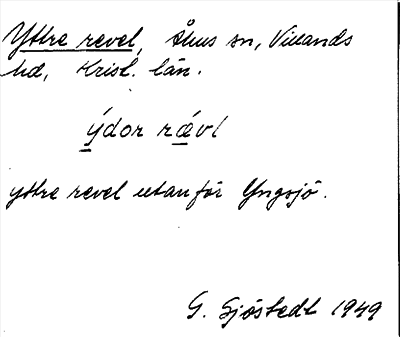 Yttre revel, Åhus sn, Villands
hd, Krist. län.
ýdor rǽvl
yttre revel utanför Yngsjö.
G. Sjöstedt 1949